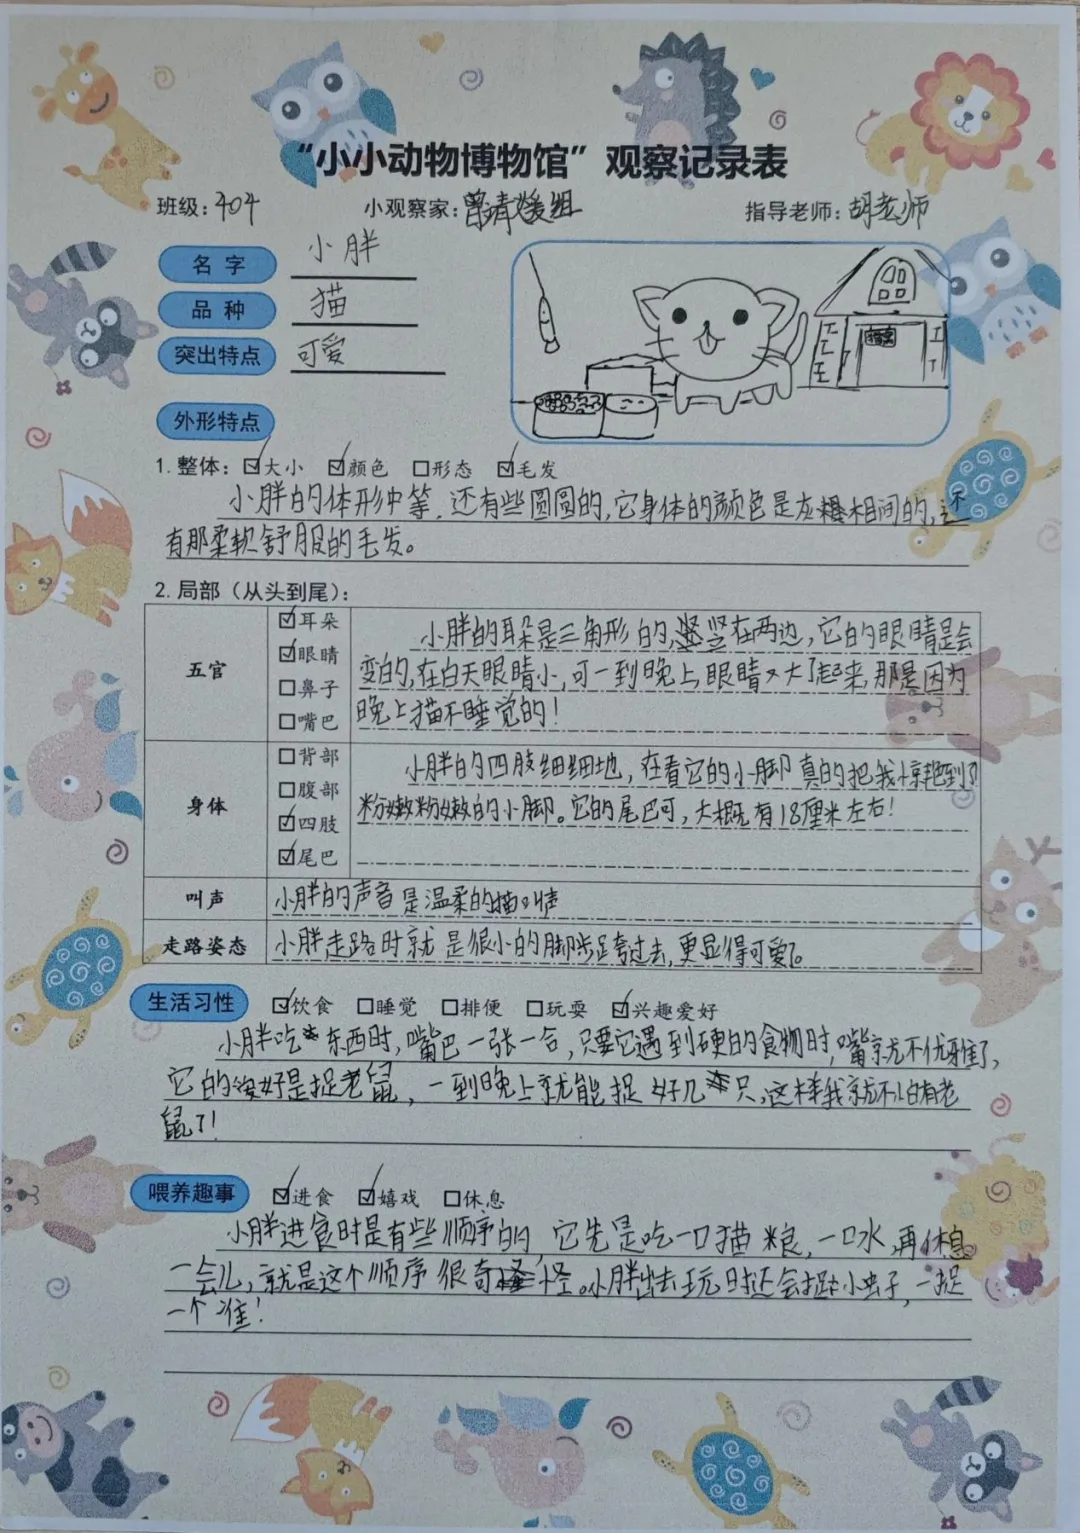 “小小动物博物馆”观察记录表
班级：404 小观察家：曾清媛组 指导老师：胡老师
名字 小胖
品种 猫
突出特点 可爱
外形特点
1.整体：☑大小 ☑颜色 □形态 ☑毛发
小胖的体形中等，还有些圆圆的，它身体的颜色是灰相间的，
有那柔软舒服的毛发。
2.局部（从头到尾）：
五官
☑耳朵
☑眼睛
□鼻子
□嘴巴
小胖的耳朵是三角形的，竖在两边，它的眼睛是会
变的，在白天眼睛小，可一到晚上眼睛又大了起来，那是因为
晚上猫不睡觉的！
身体
□背部
□腹部
☑四肢
☑尾巴
小胖的四肢细细地，在看它的小脚真的把我惊艳到了
粉嫩粉嫩的小脚。它的尾巴可，大概有18厘米左右！
叫声
小胖的声音是温柔的猫叫声
走路姿态
小胖走路时就是很小的脚步跨过去，更显得可爱。
生活习性 ☑饮食 □睡觉 □排便 □玩耍 ☑兴趣爱好
小胖吃东西时，嘴巴一张一合，只要它遇到硬的食物时，嘴就不优雅了，
它的爱好是捉老鼠，一到晚上就能捉好几只，这样我就不怕有老
鼠了！
喂养趣事 ☑进食 ☑嬉戏 □休息
小胖进食时是有些顺序的，它先是吃一口猫粮，一口水，再休息
一会儿，就是这个顺序很奇怪。小胖出去玩时还会捉小虫子，一捉
一个准！